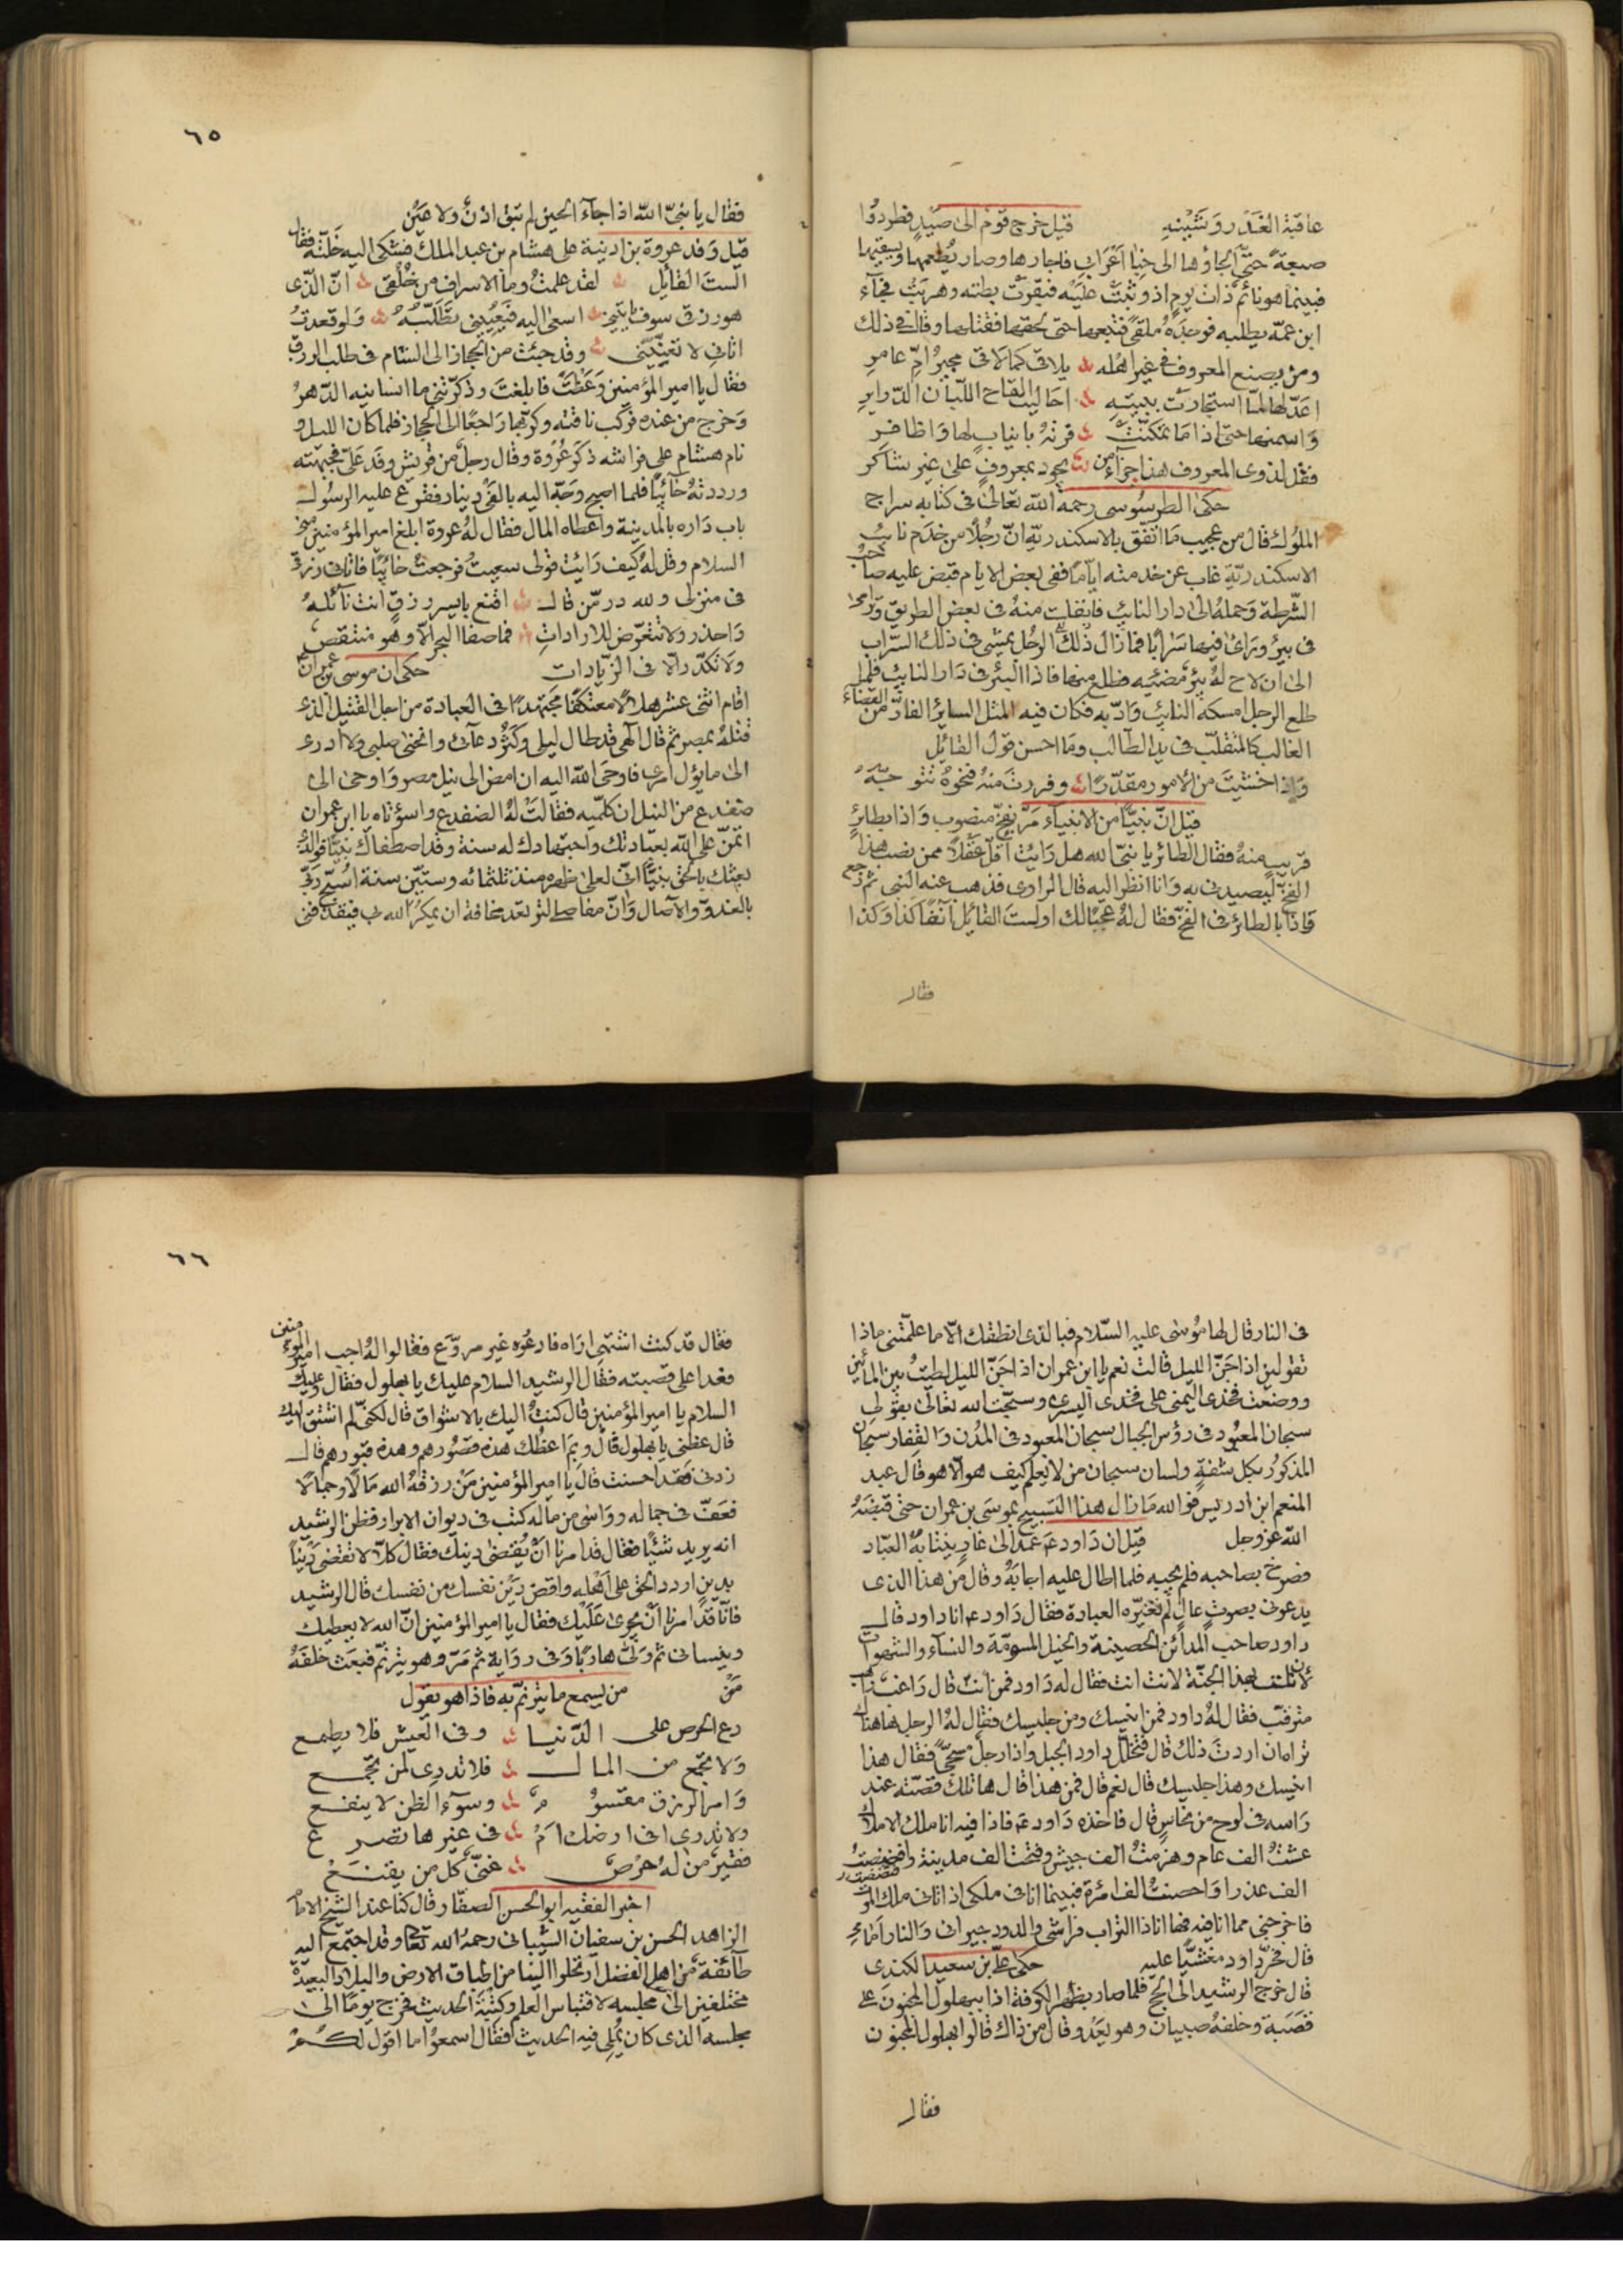 عاقبة الغدر وتشبيْنهِ قيل خرج قومٌ الى صيْدٍ فطردوا
ضبعةً حتّى ألجاؤها الى خِبا اعْرابي فاجارها وصار يُطعمها ويسقيها
فبينما هو نائمٌ ذات يومٍ اذ وثبتْ عليْه فبقرتْ بطنه وهربَتْ فجآء
ابن عمّه يطلبه فوجدَهُ ملقىً فتبعها حتى لحقها فقتلها وقال في ذلك
ومن يصنع المعروف في غير اهْله يلاقى كما لاقى مجيرُ امِّ عامرِ
اعَدّ لها لمّا استجارتْ ببيتهِ احاليب القاح اللبان الدّرايرِ
وَاسمنها حتى اذا مَا تمكنّتْ فرتهُ بانيابٍ لها وَاظافرِ
فقل لذوى المعروف هذا جزآءُ من يجود بمعروفٍ على غير شاكر
حكى الطرسُوسى رحمهُ الله تعَالى فى كتابه سراج
الملوك قال من عجيب مَا اتفق بالاسكندريّه انّ رجُلاً من خدَم نائب
الاسكندريّة غاب عن خدمته ايامًا ففى بعض الايام قبض عليه صاحبُ
الشّرطة وَحملهُ الى دار النائب فانفلت منهُ فى بعض الطريق وَترامى
فى بيرٍ ورَاى فيها سَرابًا فما زال ذلك الرجُل يمشى فى ذلك السّراب
الى ان لاح لهُ بئرٌ مضئيه فطلع منها فاذا البئر فى دَار النائب فلما
طلع الرجل امسكهُ النائب وَادّبه فكان فيه المثل الساير الفارّ من القضآء
الغالب كالمتقلّب فى يد الطّالب ومَا احسن قول القائيل
وَاذا خشيتَ من الامور مقدّرًا وفررتَ منهُ فنحوهُ تتوجّهُ
قيل انّ نبيًّا من الانبيآء مَرّ بفخٍّ منصوب وَاذا بطائرٍ
قريبٍ منهُ فقال الطائر يا نبىّ الله هل رَايْت أقلّ عقْلاً ممن نصب هذا
الفخّ ليصيدنى به وَانا انظر اليه قال الراوى فذهب عنه النبى ثم رجع
فاذا بالطائر فى الفخّ فقال لهُ عجبًا لك اولستَ القائيل آنفًا كذا وَكذا
فقال
٦٥
فقال يا نبىّ الله اذا جآء الحين لم تبق اذنٌ ولا عَيْن
قيل وَفد عروة بن اذينة على هشام بن عبد الملك فشكى اليه خَلّته فقال
الستَ القائيل لقد علمتُ وما الاسراف من خُلُقى انّ الذى
هو رزقى سوف ياتينى اسعى اليه فيُعيّينى تطلّبُهُ وَلو قعدتُ
اتانى لا يعنّينى وقد جئت من الحجاز الى الشام فى طلب الرزق
فقال يا امير المؤمنين وَعَظتَ فابلغتَ وذكّرتنى ما انسانيه الدّهرُ
وَخرج من عنده فركب ناقته وكرّ بها رَاجعًا الى الحجاز فلما كان الليل و
نام هشام على فراشه ذكر عُرْوة وقال رجلٌ من قريش وفد عَلىّ فجبهته
ورددتهُ خائبًا فلما اصبح وَجّه اليه بالفى دينار فقرع عليه الرسُول
باب دَاره بالمدينة واعطاه المال فقال لهُ عروة ابلغ امير المؤمنين منى
السلام وقل لهُ كيف رَايْت قولى سعيتُ فرجعتُ خائبًا فاتانى رزقى
فى منزلى ولله در مّن قال اقنع بايسر رزقٍ انت نائلهُ
وَاحذر ولا تتعرّض للاراداتِ فما صفا البحر الّا وهو منتقصٌ
ولا تكدّر الّا فى الزّيادات حكى ان موسى بن عمران
اقام اثنى عشر هلالًا معتكفًا مجتهدًا فى العبادة من اجل القتيل الذى
قتلهُ بمصر ثم قال الٓهى قد طال ليلى وكَثُر دعآئى وانحنى صلبى ولا ادرى
الى ما يؤل امرى فاوحَى الله اليه ان امض الى نيل مصر وَاوحى الى
ضفدع من النيل ان كلميه فقالتْ لهُ الضفدع واسؤتاه يا ابن عمران
اتمنّ على الله بعبادتك واجتهادك له سنة وقد اصطفاك نبيًّا فوالذى
بعثك بالحق نبيًّا انّى لعلى ظهره منذ ثلثمائه وستين سنة اُسبّح رَبّى
بالغدوّ والآصال وَانّ مفاصلى لترتعد مخافة ان يمكرُ الله بى فيقذفنى
فى النار قال لها مُوسى عليه السّلام فبالذى انطقك الّا ما علمّتنى ماذا
تقولين اذا جَنّ الليل قالت نعم يا ابن عمران اذا جَنّ الليل لطيتُ بين المائين
ووضعت فخدى اليمنى على فخدى اليسرى وسبّحتُ الله تعَالى بقولى
سبحان المعبُود فى رؤس الجبال سبحان المعبود فى المدُن وَالقِفار سبحان
المذكورُ بكل شفةٍ ولسان سبحان من لا يعلم كيف هو الّا هو قال عبد
المنعم ابن ادريس فوالله مَا زال هذا التسبيح بموسَى بن عمران حتى قبضَهُ
الله عز وجل قيل ان دَاود عم عمد الى غارٍ ينتابهُ العبّاد
فصرخ بصاحبه فلم يجبه فلما اطال عليه اجابَهُ وقال من هذا الذى
يدعونى بصوتٍ عالٍ لم تغيّره العبادة فقال دَاود عم انا داود قال
داود صاحب المدائن الحصينة والخيل المسوّمة والنسآء والشهوات
لأن نلت بهذا الجنّة لانت انت فقال له دَاود فمن انت قال رَاغبٌ
مترقب فقال لهُ داود فمن انيسك ومن جليسك فقال لهُ الرجل هاهنا
تراه ان اردتَ ذلك قال فتخلّل داود الجبل واذا رجلٌ مسجّىً فقال هذا
انيسك وهذا جليسك قال نعم قال فمن هذا قال ها تلك قصّته عند
رَاسه فى لوح من نحاسٍ قال فاخذه دَاود عم فاذا فيه انا ملك الاملاك
عشتُ الف عام وهزمتُ الف جيشٍ وفتحت الف مدينة وافتضضتُ
الف عذرا وَاحصنتُ الف امرَءة فبينما انا فى ملكى اذ اتانى ملك الموت
فاخرجنى مما انا فيه فها انا ذا التراب فراشى والدود جيرانى وَالنار امَامى
قال فخرّ داود مغشيًّا عليه حكى علىّ بن سعيد الكندى
قال خرج الرشيد الى الحج فلما صار بظهر الكوفة اذا ببهلول المجنون على
قصَبة وخلفهُ صبيان وهو يعَدُ وقال من ذاك قالوا بهلول المجنون
فقال
٦٦
فقال قد كنت اشتهى اراه فادعُوه غير مروّع فقالوا لهُ اجب امير المؤمنين
فغدا على قصبته فقال الرشيد السلام عليك يا بهلول فقال وعليك
السلام يا امير المؤمنين قال كنتُ اليك بالاشواق قال لكنّى لم اشتق اليك
قال عظنى يا بهلول قال وبِمَ اعظك هذه قصُورهم وهذه قبورهم قال
زدنى فقد احسنت قال يا امير المؤمنين مَنْ رزقهُ الله مَالًا وجمالًا
فعَفّ فى جماله ووَاسَى من مَاله كتب فى ديوان الابرار فظن الرشيد
انه يريد شيْئًا فقال قد امرنا انْ يُقتضى دينك فقال كلّا لا تقضى دَيْناً
بدين اردد الحق على اَهْله واقض دَيْن نفسك من نفسك قال الرشيد
فانّا قد امرنا انْ يجرى عَليْك فقال يا امير المؤمنين انّ الله لا يعطيك
وينسانى ثم وَلىّ هاربًا وَفى روَاية ثم مَرّ وهو يترنمّ فبَعَث خلفَهُ
مَنْ من يسمع ما يترنمّ به فاذا هو يقول
دع الحرص على الدّنيا وفى العيش فلا يطمع
وَلا تجمع من المال فلا تدرى لمن تجمع
وَامر الرزق مقسومٌ وسوء الظن لا ينفع
ولا تدرى افى ارضك امْ فى غيرها تصرع
فقيرٌ من لهُ حرْصٌ غنىٌّ كلّ من يقنعْ
اخبر الفقيه ابو الحسن الصفّار وقال كنّا عند الشيخ الامام
الزاهد الحسن بن سفيان الشّيبانى رحمهُ الله تعالى وقد اجتمع اليه
طآئفة من اهل الفضل ارتحلوا الينا من اطباق الارض والبلاد البعيدة
مختلفين الى مجلسه لاقتباس العلم وكتبة الحديث فخرج يومًا الى
مجلسه الذى كان يُملى فيه الحديث فقال اسمعُوا ما اقول لكمْ